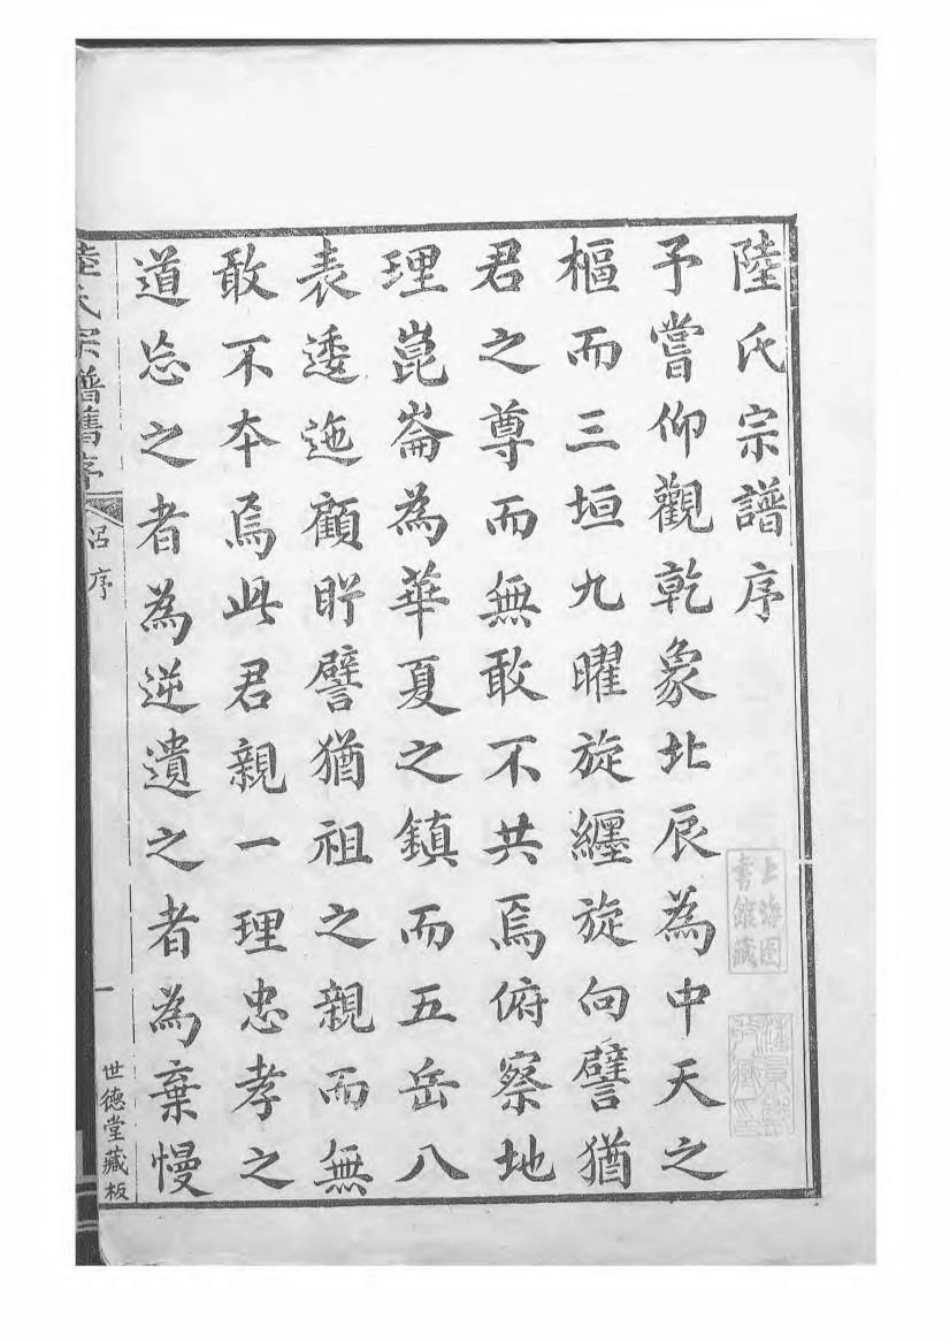 陸氏宗譜序
予嘗仰觀乾象北辰為中天之
樞而三垣九曜旋纏旋向譬猶
君之尊而無敢不共焉俯察地
理崑崙為華夏之鎮而五岳八
表逶迤顧盱譬猶祖之親而無
敢不本焉此君親一理忠孝之
道忘之者為逆遺之者為棄慢
陸氏宗譜舊序
呂序
一
世德堂藏板
上海图
書館藏